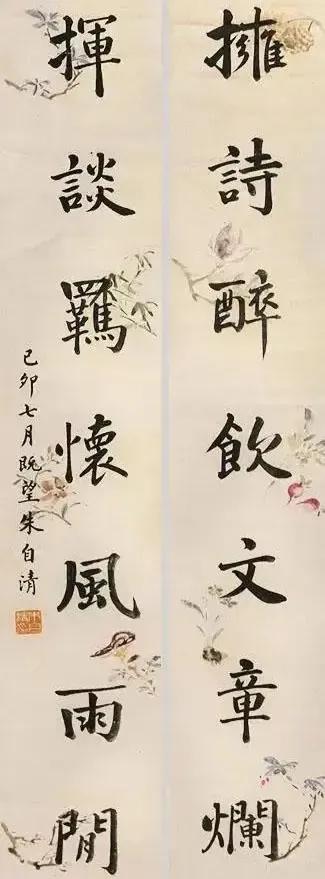 擁詩醉飲文章爛
揮談羈懷風雨閒
己卯七月既望朱自清